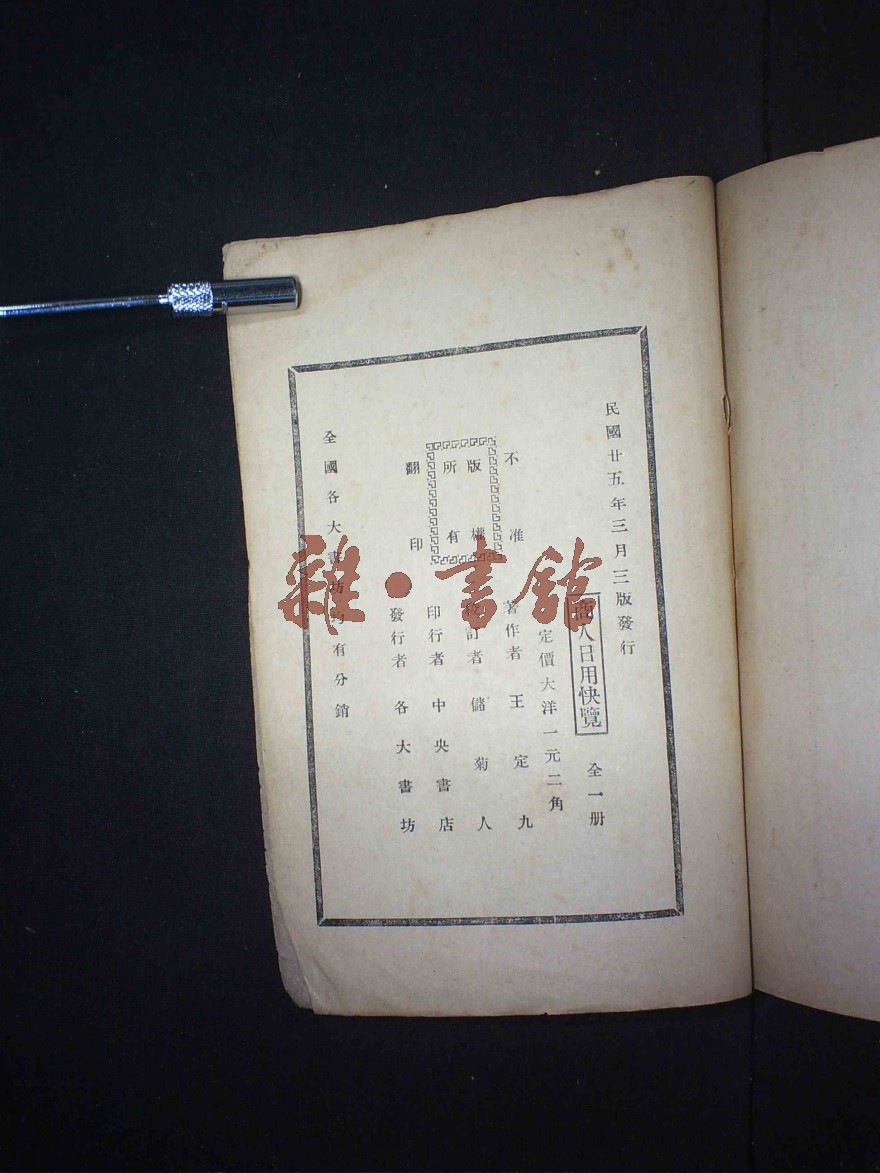 民國廿五年三月三版發行
商人日用快覽 全一册
定價大洋一元二角
著作者 王定九
校訂者 儲菊人
印行者 中央書店
發行者 各大書坊
不准
版權
所有
翻印
全國各大書坊均有分銷
雜·書館